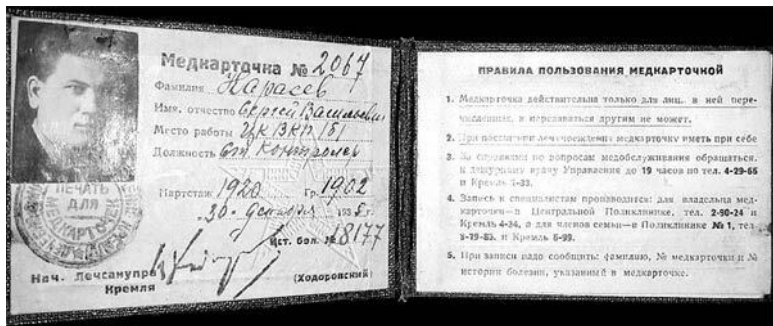 Медкарточка № 2067
Фамилия Карасев
Имя, отчество Сергей Васильевич
Место работы ЦК ВКП/б/
Должность Ст Контролер
Партстаж 1920 Гр. 1902
"30" декабря 1935 г.
Ист. бол. № 18177
ПЕЧАТЬ
ДЛЯ
МЕДКАРТОЧЕК
Нач. Лечсанупра
Кремля
(Ходоровский)
ПРАВИЛА ПОЛЬЗОВАНИЯ МЕДКАРТОЧКОЙ
1. Медкарточка действительна только для лиц, в ней пере-
численных, и передаваться другим не может.
2. При посещении лечучреждения медкарточку иметь при себе
3. За справками по вопросам медобслуживания обращаться.
к дежурному врачу Управления до 19 часов по тел. 4-29-66
и Кремль 1-33.
4. Запись к специалистам производится: для владельца мед-
карточки—в Центральной Поликлинике, тел. 2-90-24 и
Кремль 4-34, а для членов семьи—в Поликлинике № 1, тел
5-79-83. и Кремль 6-99.
5. При записи надо сообщить: фамилию, № медкарточки и №
истории болезни, указанный в медкарточке.